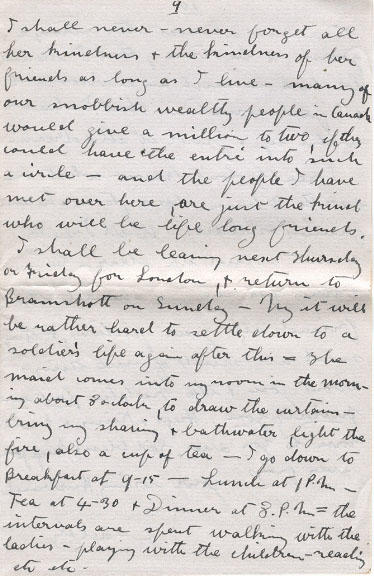 9
I shall never - never forget all
her kindness + the kindness of her
friends as long as I live - many of
our snobbish wealthy people in Canada
would give a million to two, if they
could have the entré into such
a circle - and the people I have
met over here, are just the kind
who will be life long friends.
I shall be leaving next Thursday
or Friday for London, + return to
Bramshott on Sunday - My it will
be rather hard to settle down to a
soldier's life again after this = The
maid comes into my room in the morn-
ing about 8 oclock, to draw the curtains -
bring my shaving + bathwater, light the
fire, also a cup of tea - I go down to
Breakfast at 9-15 - Lunch at 1 P.M -
Tea at 4-30 + Dinner at 8. P.M = the
intervals are spent walking with the
ladies - playing with the children - reading
etc etc -